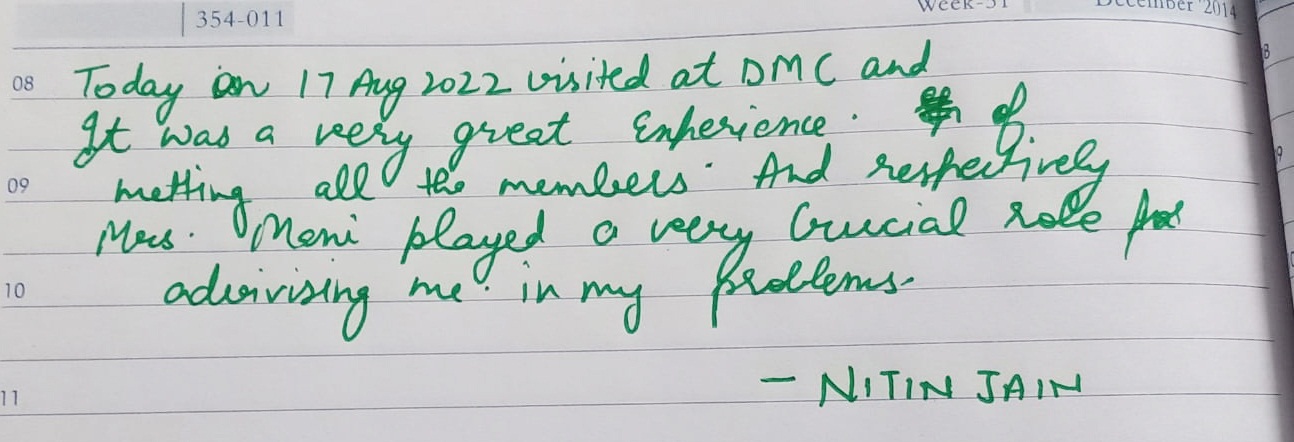 354-011
Week-51 December '2014
08 Today on 17 Aug 2022 visited at DMC and
It was a very great Experience. of
09 metting all the members. And respectively
Mrs. Moni played a very Crucial role for
10 advivising me in my problems.
11 - NITIN JAIN